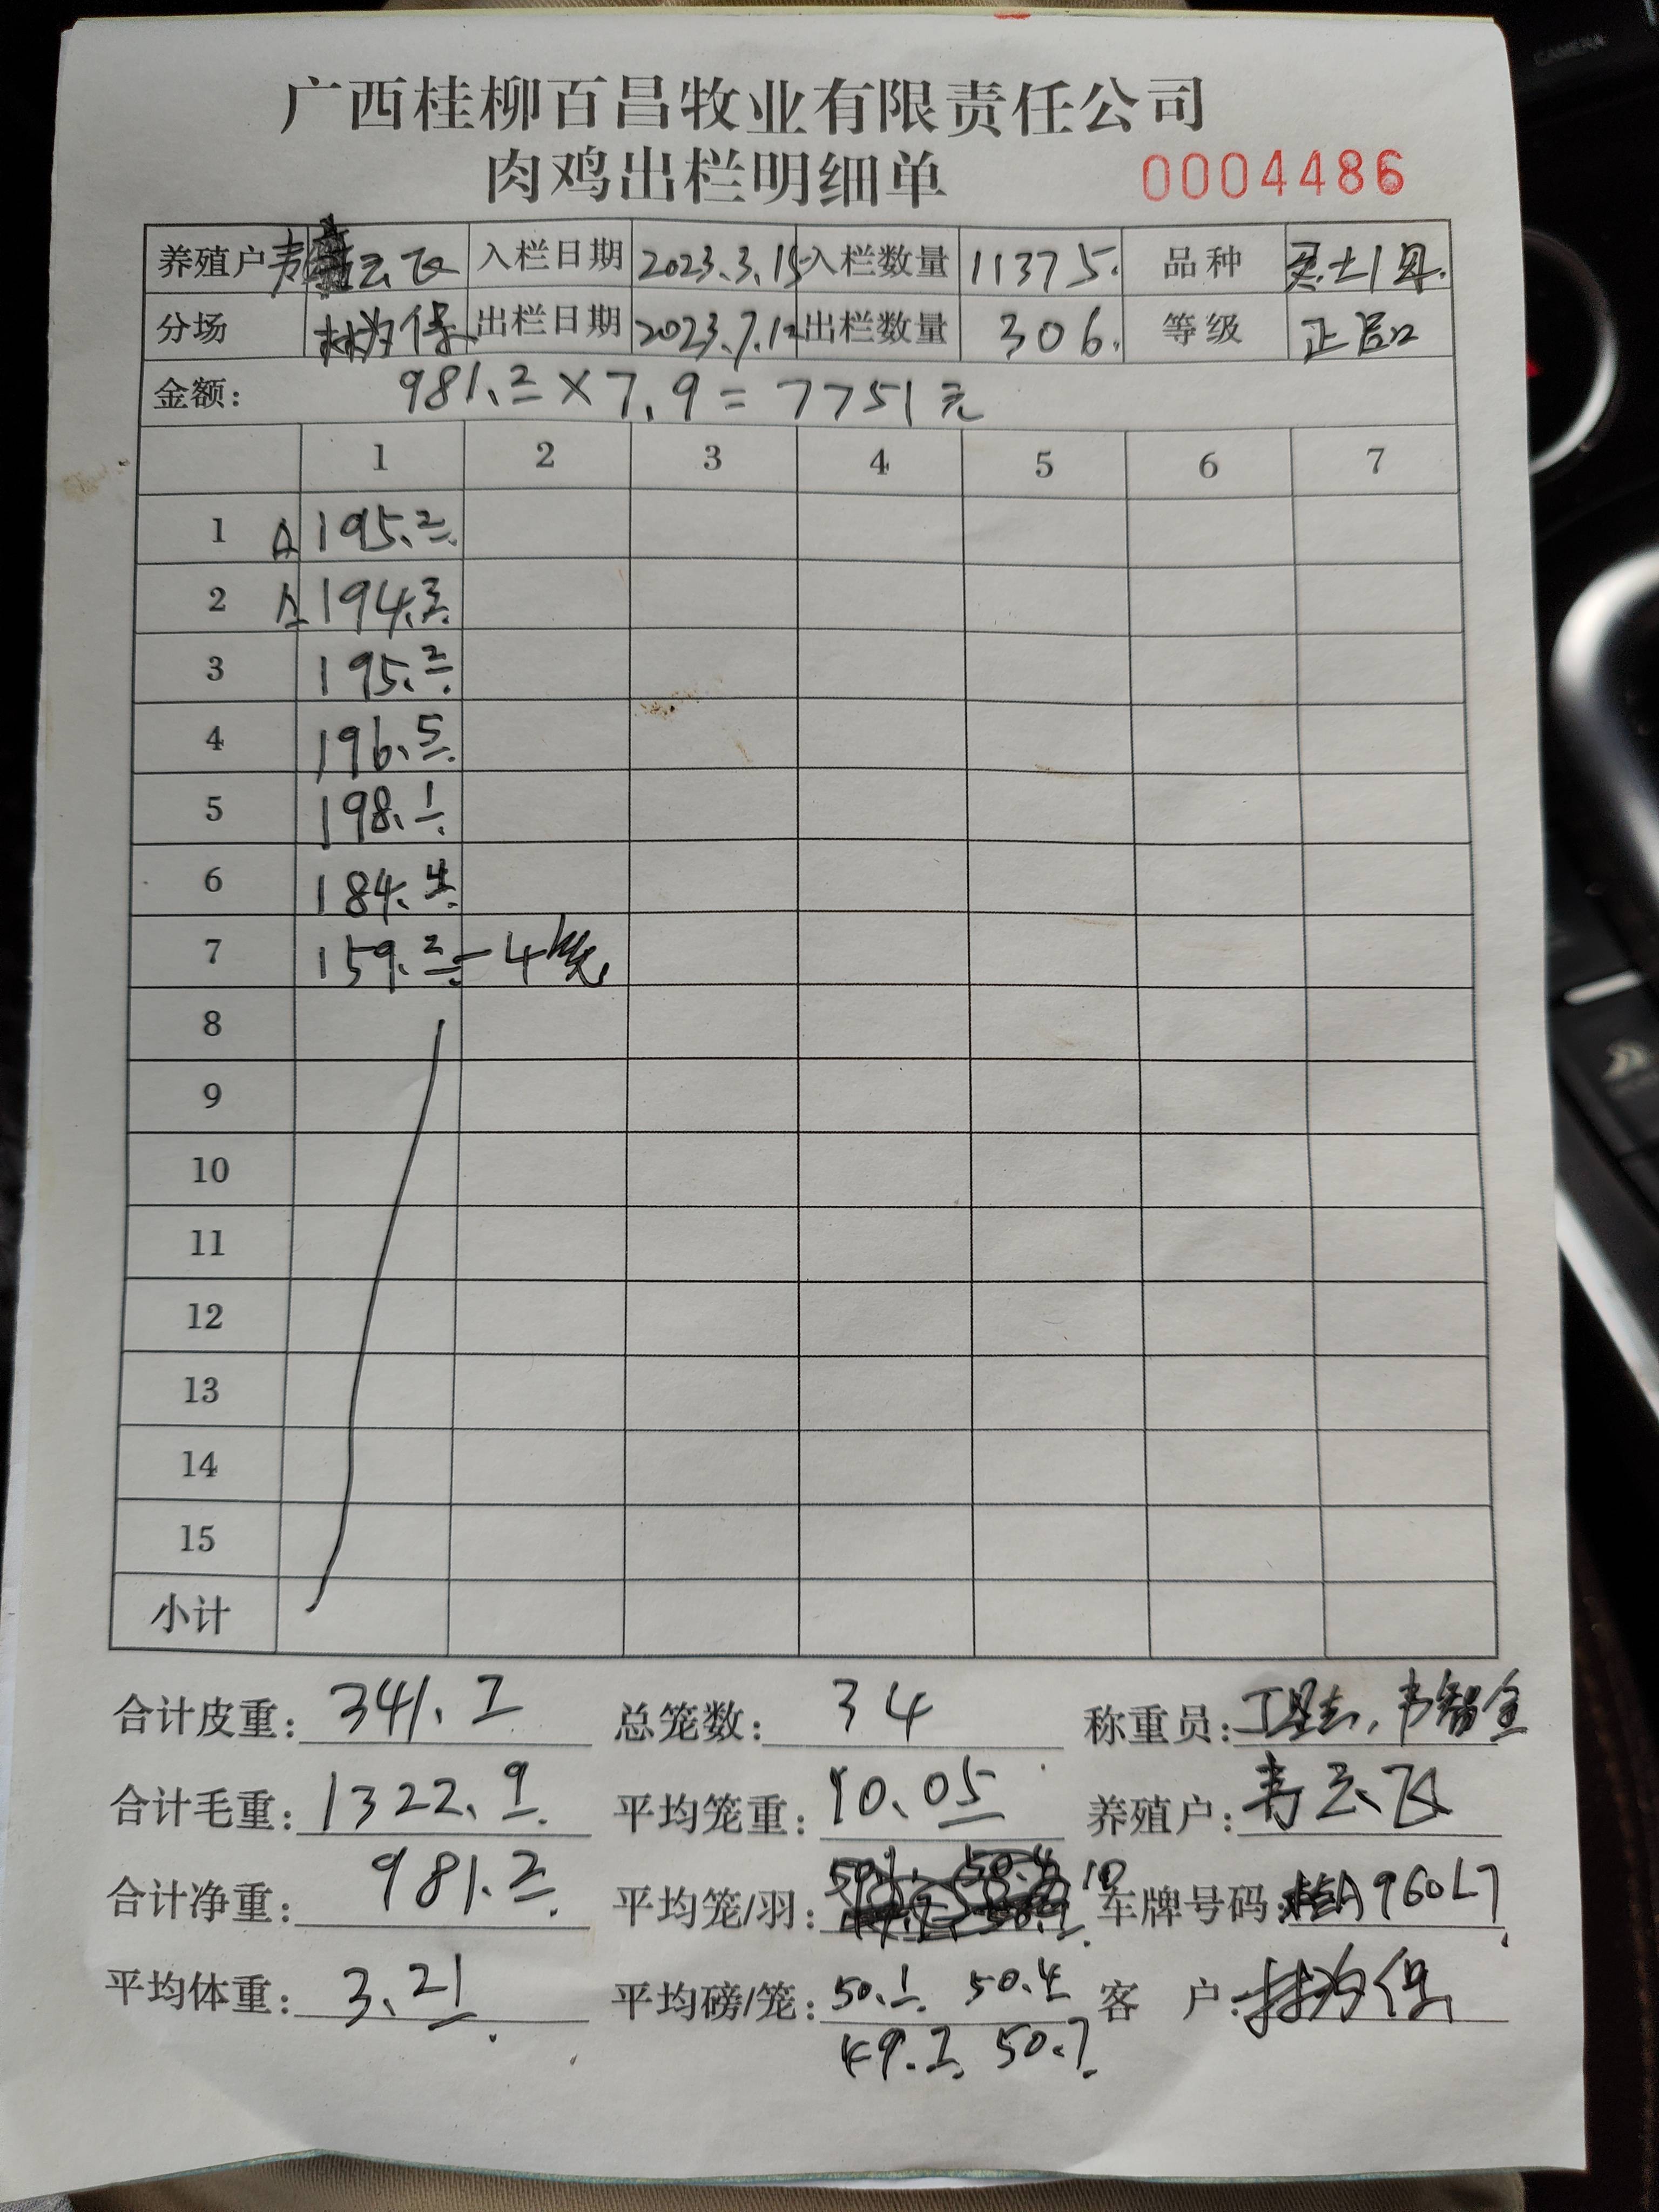 广西桂柳百昌牧业有限责任公司
肉鸡出栏明细单 0004486
养殖户 韦云飞 入栏日期 2023.3.15 入栏数量 11375. 品种 土1
分场 林为保 出栏日期 2023.7.12 出栏数量 306. 等级 正品
金额: 981.2×7.9=7751元
1 2 3 4 5 6 7
1 A 195.2
2 A 194.3
3 195.2
4 196.5
5 198.1
6 184.4
7 159.2-4
8
9
10
11
12
13
14
15
小计
合计皮重: 341.7 总笼数: 34 称重员: 韦智全
合计毛重: 1322.9 平均笼重: 10.05 养殖户: 韦云飞
合计净重: 981.2 平均笼/羽: 10 车牌号码: 桂A960L7
平均体重: 3.21 平均磅/笼: 50.1 50.4 客 户: 林为保
49.7 50.7